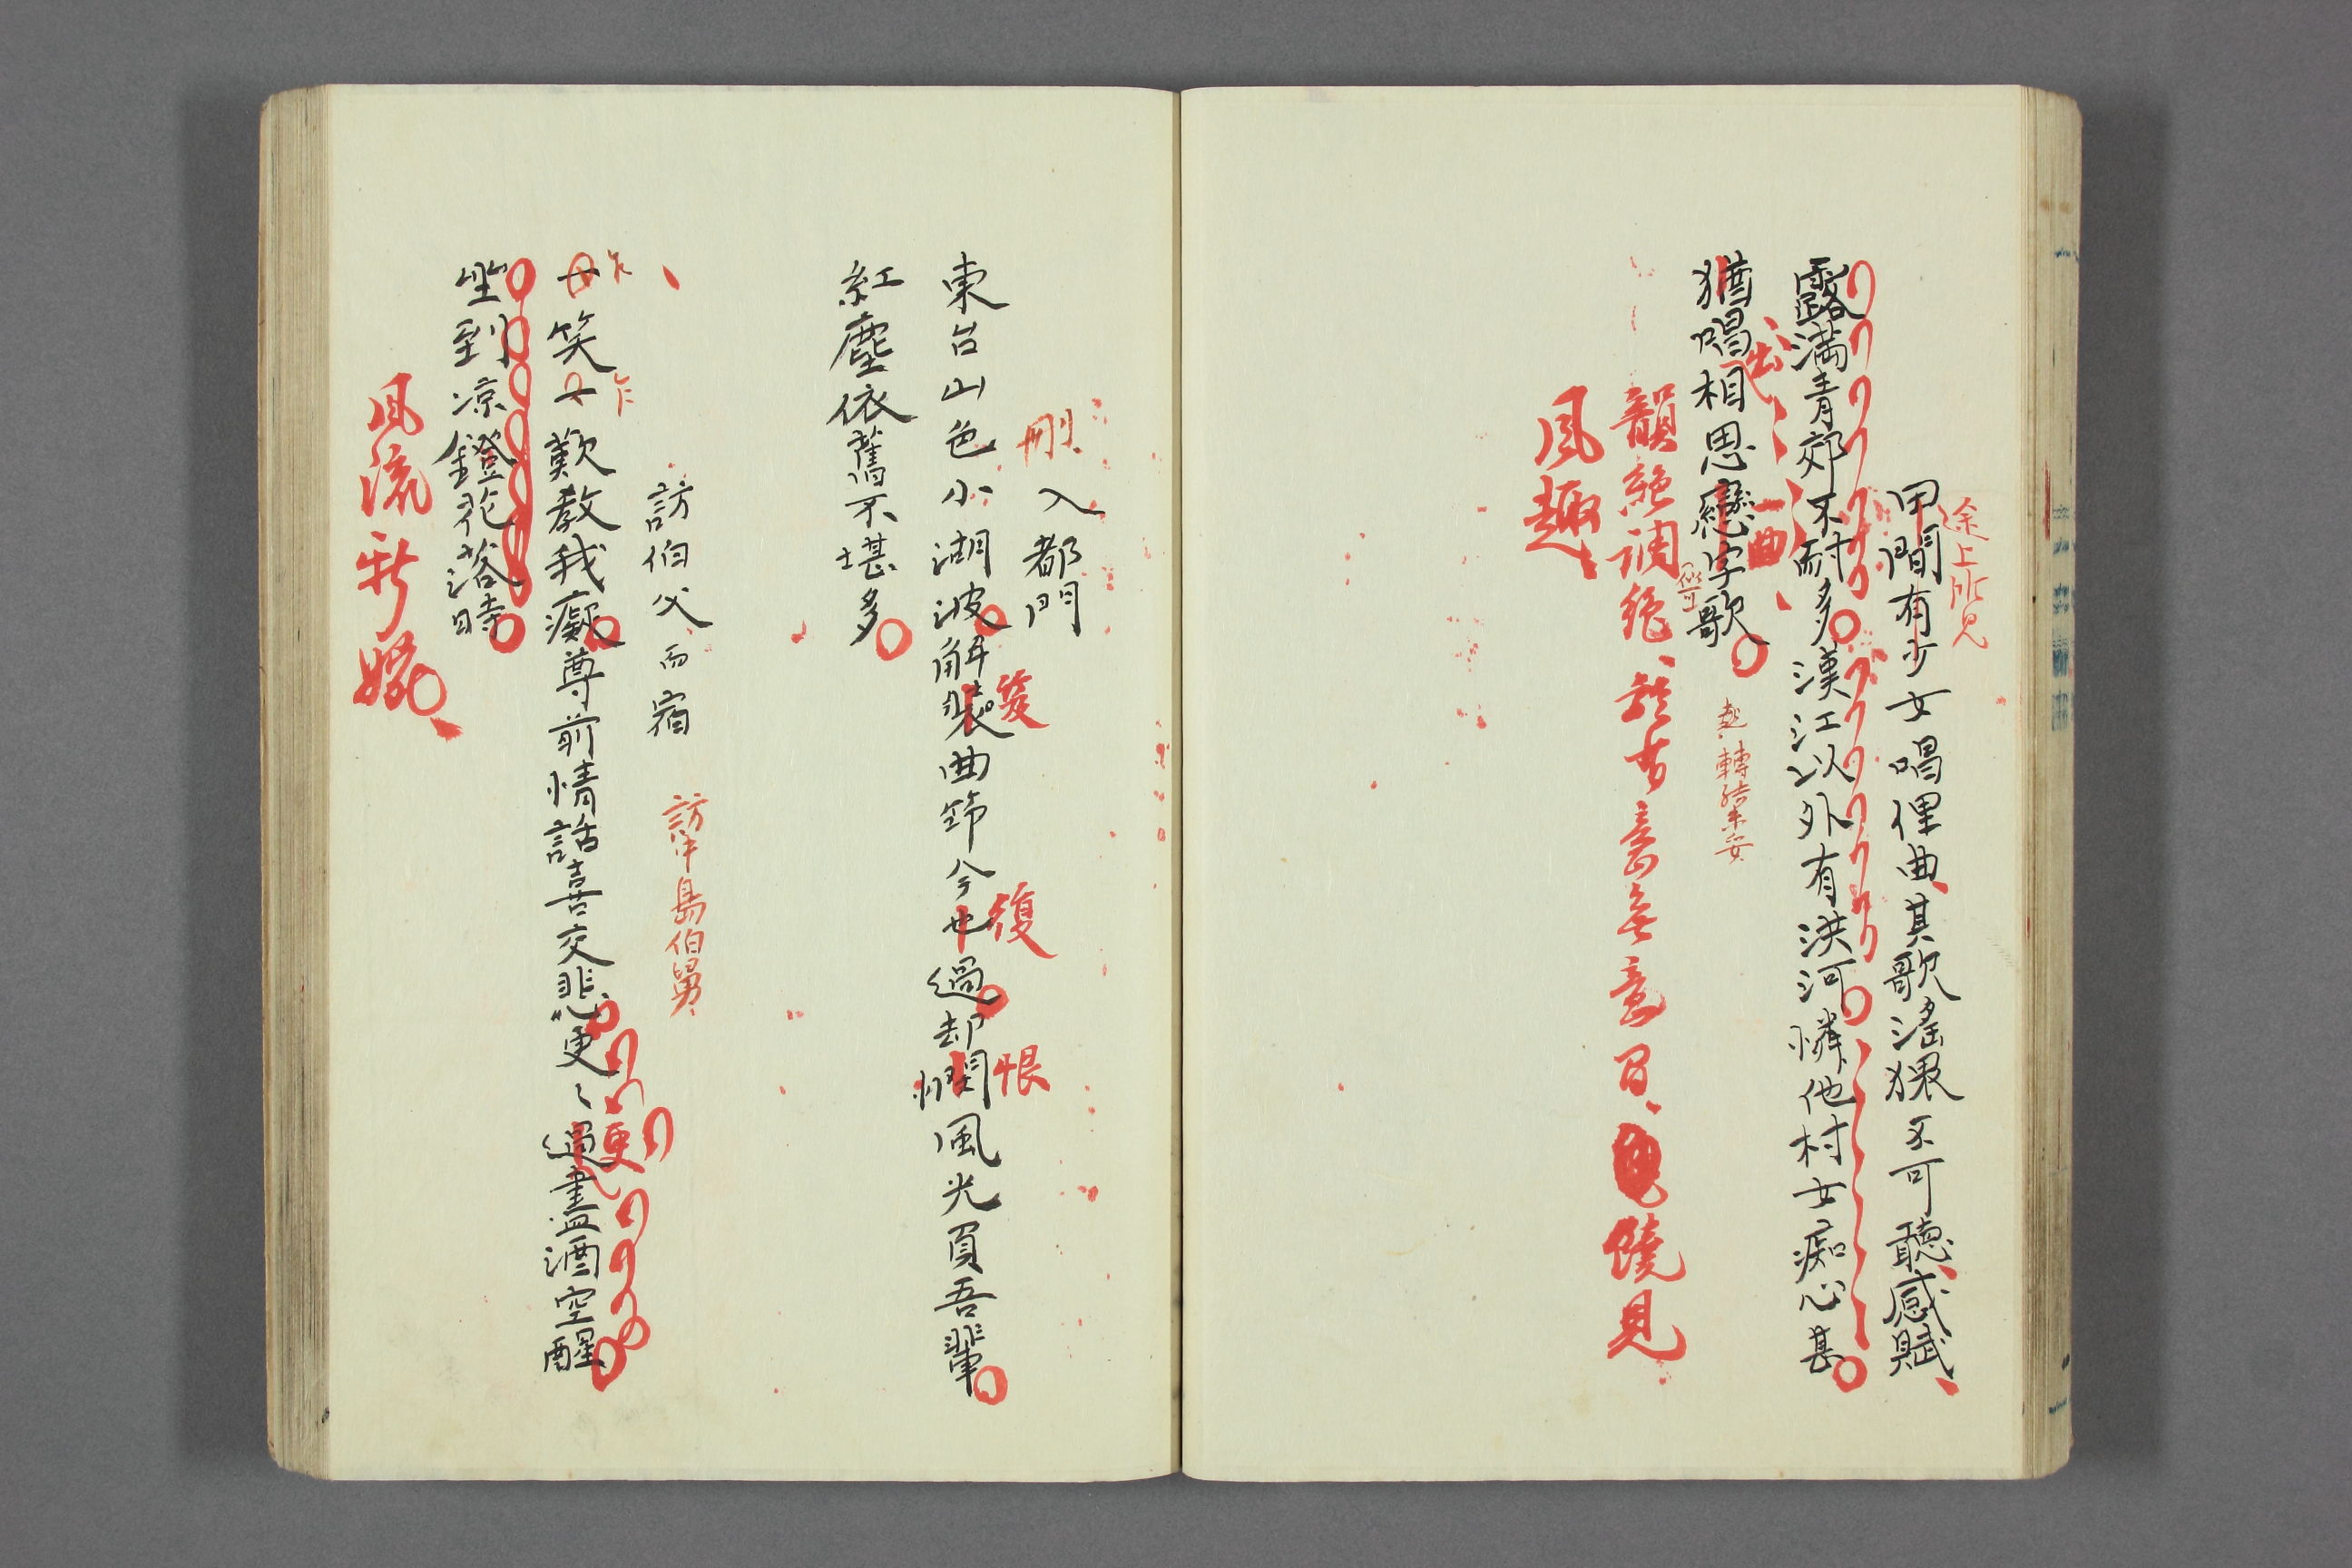 途上所見
田間有少女唱俚曲其歌淫猥不可聽感賦
露満青郊不耐多漢江以外有洪河憐他村女痴心甚
出 一曲
猶唱相思戀字歌
起轉結未妥
韻絶調絶
饒見
風趣
刪 入都門
東台山色小湖波解装曲節今也過却憪風光負吾輩
笈 復 恨
紅塵依舊不堪多
訪伯父而宿 訪中島伯舅
乍 乍
女笑女歎教我癡尊前情話喜交悲更〻過盡酒空醒
更
坐到凉鐙花落時
風流新婉